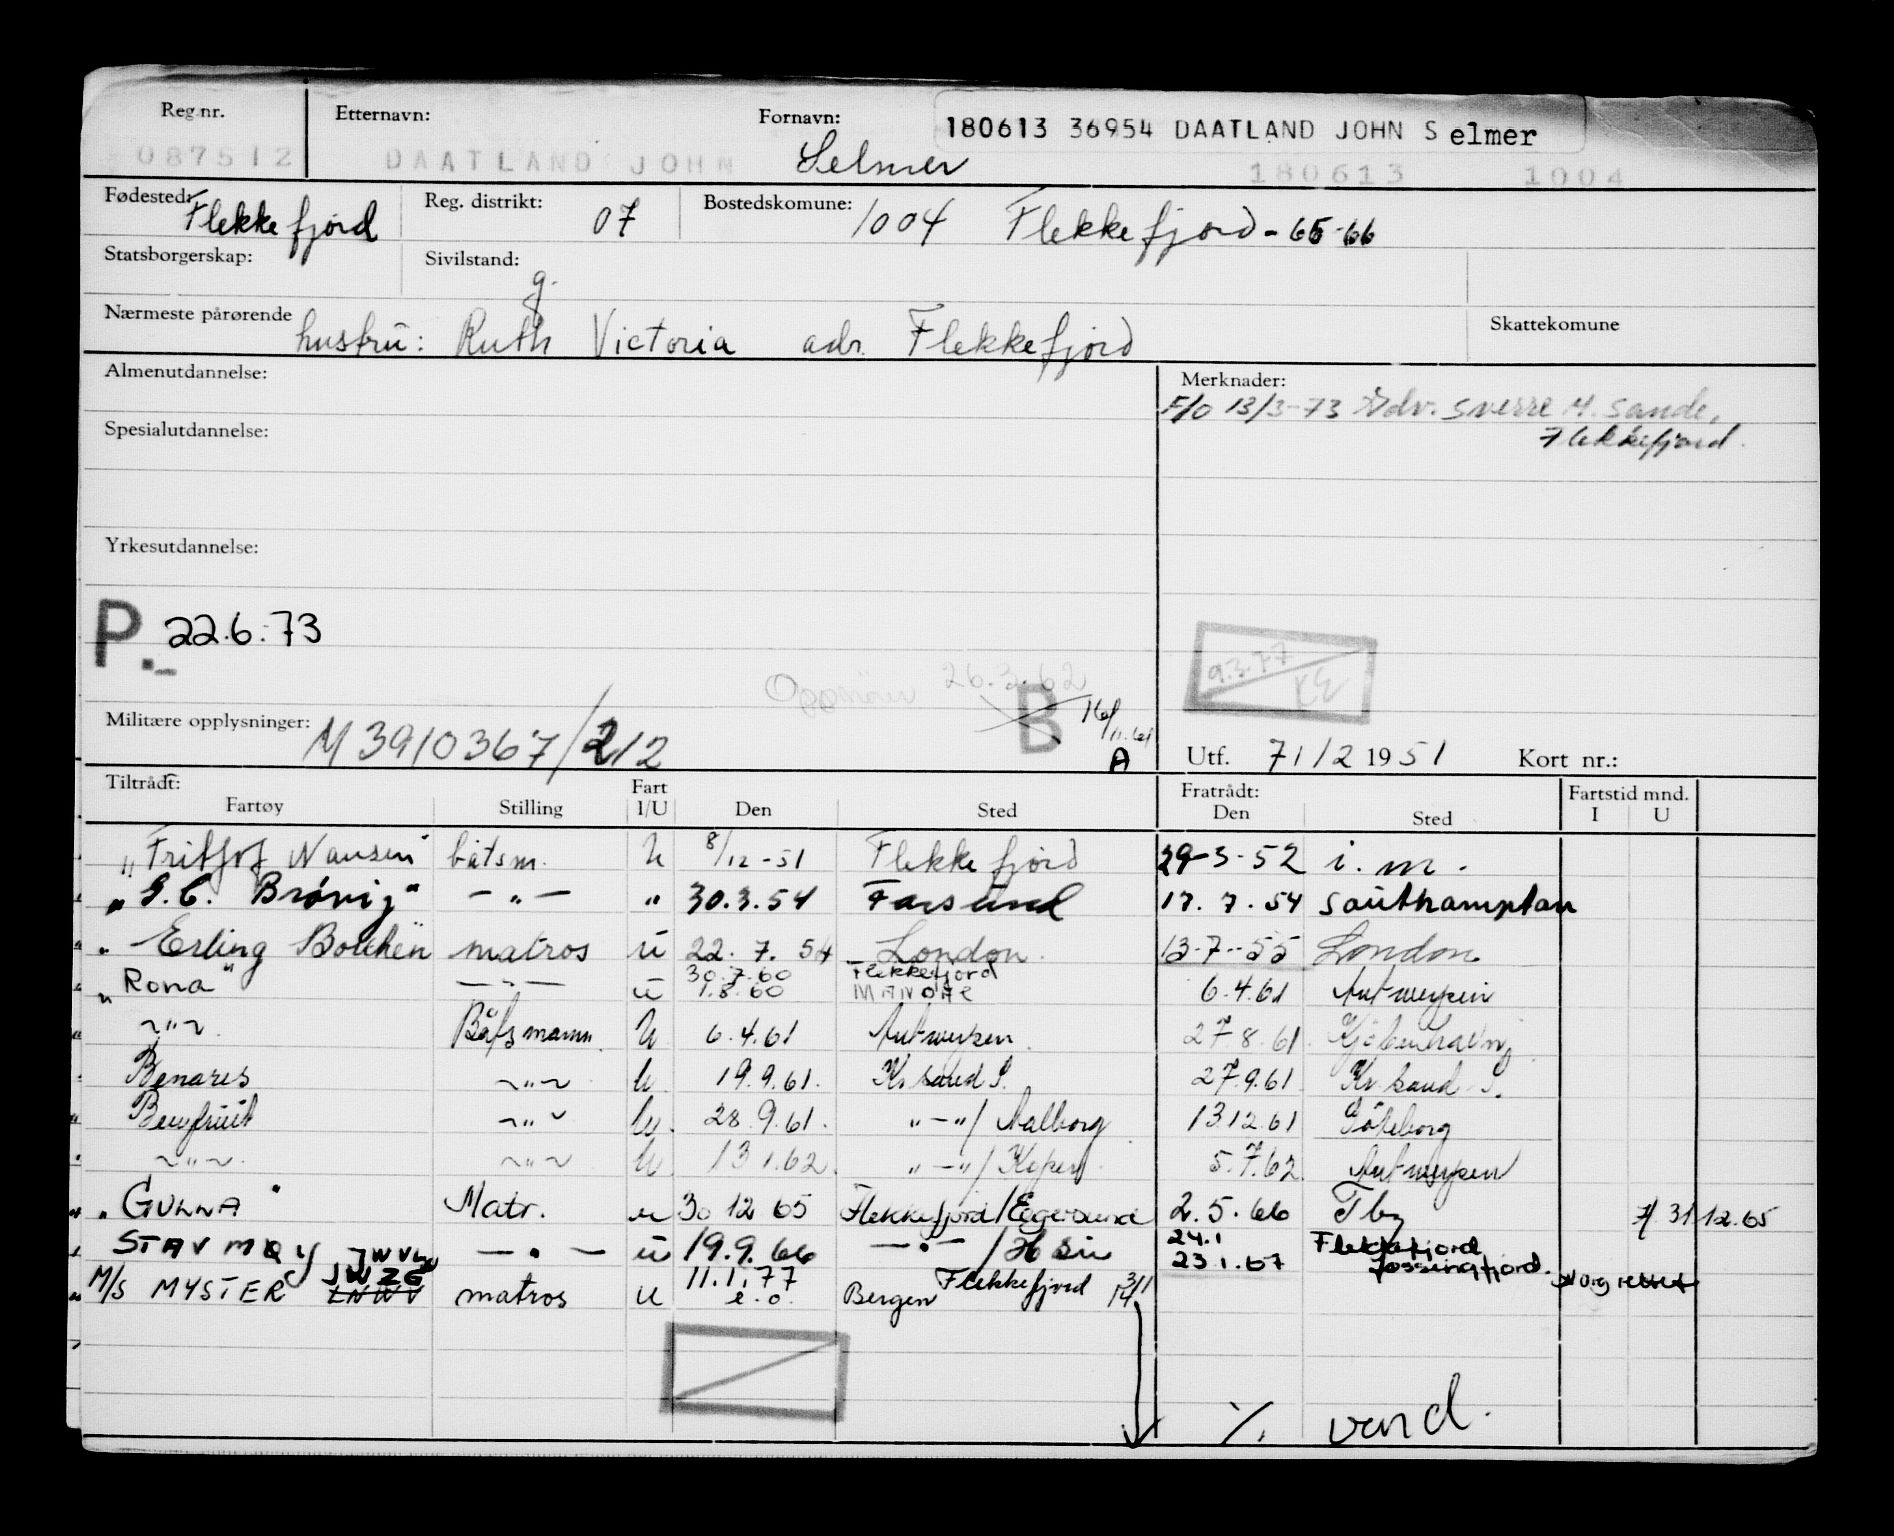 Reg.nr. Etternavn: Fornavn: 180613 36954 DAATLAND JOHN S elmer
087512 DAATLAND JOHN Selmer 180613 1004
Fødested: Flekkefjord Reg. distrikt: 07 Bostedskomune: 1004 Flekkefjord - 65-66
Statsborgerskap: Sivilstand: g.
Nærmeste pårørende hustru: Ruth Victoria adr. Flekkefjord Skattekomune
Almenutdannelse: Merknader:
F/O 13/3-73 Adv. Sverre M. Sande,
Flekkefjord.
Spesialutdannelse:
Yrkesutdannelse:
P. 22.6.73
9.3.77
26.3.62
B 16/11.61
Militære opplysninger: M 3910367/212
A Utf. 71/2 1951 Kort nr.:
Tiltrådt: Fart Fratrådt: Fartstid mnd.
Fartøy Stilling I/U Den Sted Den Sted I U
"Fritjof Nansen" båtsm. U 8/12-51 Flekkefjord 29-3-52 i.m.
"G.C. Brøvig" —"— " 30.3.54 Farsund 17.7.54 Southampton
" Erling Borthen matros u 22.7.54 London. 13-7-55 London
"Rona" —"— u 30.7.60 Flekkefjord
1.8.60 6.4.61 Antwerpen
~"~ Båtsmann U 6.4.61 Antwerpen 27.8.61 Kjöbenhavn
Benares ~"~ U 19.9.61. Kr.sand S. 27.9.61 Kr.sand S.
~"~ U 28.9.61. "—"/ Aalborg 13.12.61 Göteborg
~"~ ~"~ U 13 1.62 "—"/ Kopen 5.7.62 Antwerpen
"GUNNA" Matr. u 30 12 65 Flekkefjord/Egersund 2.5.66 Tby 31 12.65
STAVMØY —"— u 19.9.66 —"— / 24.1 Flekkefjord
23.1.67 Jøssingfjord.
M/S MYSTER JWZG matros U 11.1.77 Flekkefjord 3/1
e.o. Bergen
% vend.